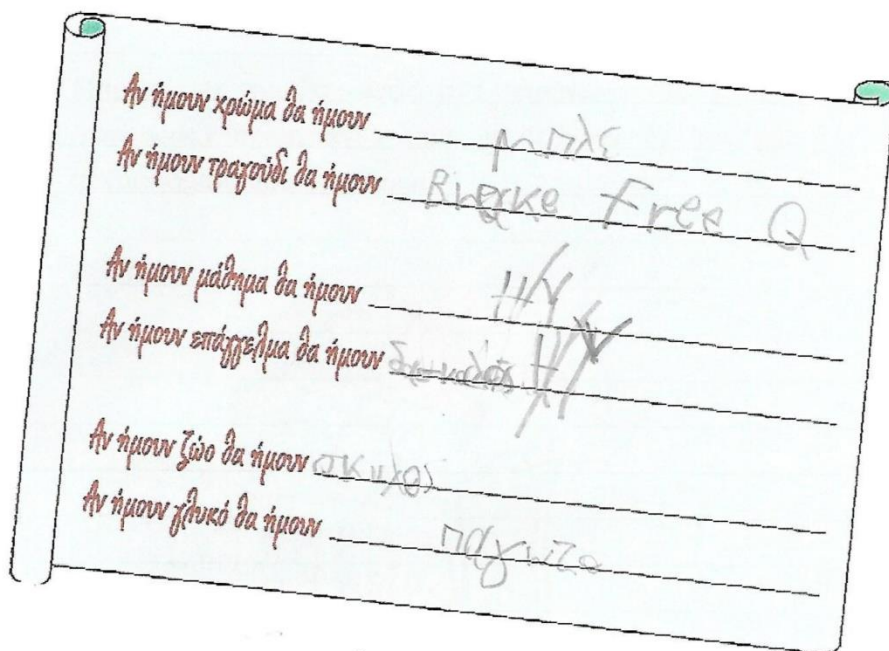 Αν ήμουν χρώμα θα ήμουν μπλε
Αν ήμουν τραγούδι θα ήμουν Free Q
Αν ήμουν μάθημα θα ήμουν
Αν ήμουν επάγγελμα θα ήμουν
Αν ήμουν ζώο θα ήμουν σκυλοι
Αν ήμουν γλυκό θα ήμουν